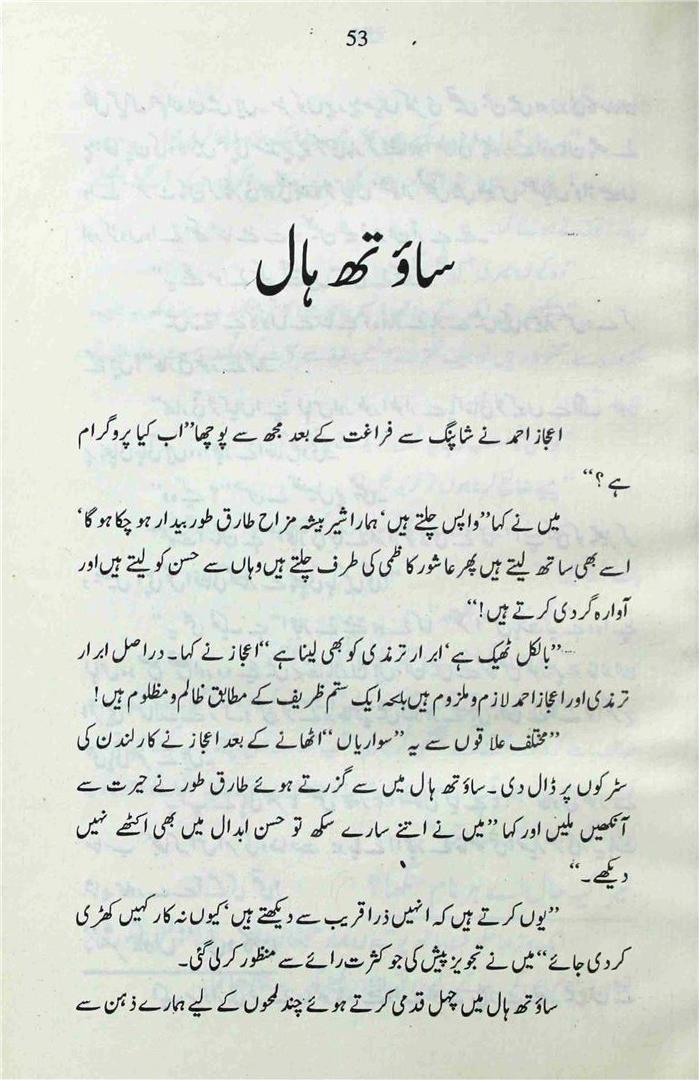 53
ساؤتھ ہال
اعجاز احمد نے شاپنگ سے فراغت کے بعد مجھ سے پوچھا ”اب کیا پروگرام
ہے؟“
میں نے کہا ”واپس چلتے ہیں، ہمارا شیر بیشہ مزاح طارق طور بیدار ہو چکا ہو گا،
اسے بھی ساتھ لیتے ہیں پھر عاشور کاظمی کی طرف چلتے ہیں وہاں سے حسن کو لیتے ہیں اور
آوارہ گردی کرتے ہیں!“
”بالکل ٹھیک ہے، ابرار ترمذی کو بھی لینا ہے“ اعجاز نے کہا۔ دراصل ابرار
ترمذی اور اعجاز احمد لازم و ملزوم ہیں بلکہ ایک ستم ظریف کے مطابق ظالم و مظلوم ہیں!
”مختلف علاقوں سے یہ ”سواریاں“ اٹھانے کے بعد اعجاز نے کار لندن کی
سڑکوں پر ڈال دی۔ ساؤتھ ہال میں سے گزرتے ہوئے طارق طور نے حیرت سے
آنکھیں ملیں اور کہا ”میں نے اتنے سارے سکھ تو حسن ابدال میں بھی اکٹھے نہیں
دیکھے۔“
”یوں کرتے ہیں کہ انہیں ذرا قریب سے دیکھتے ہیں، کیوں نہ کار کہیں کھڑی
کر دی جائے“ میں نے تجویز پیش کی جو کثرت رائے سے منظور کر لی گئی۔
ساؤتھ ہال میں چہل قدمی کرتے ہوئے چند لمحوں کے لیے ہمارے ذہن سے